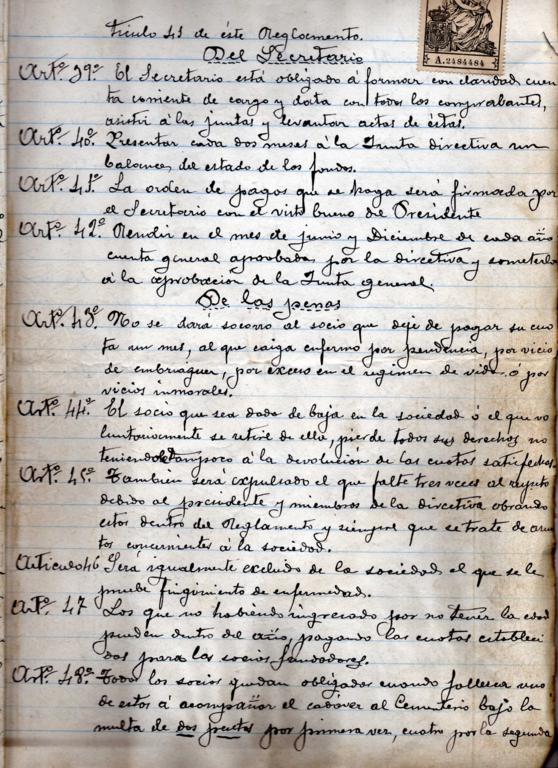 ticulo 43 de éste Reglamento.
A.2484484
Del Secretario
Artº 39º El Secretario está obligado á formar con claridad, cuen
ta corriente de cargo y data con todos los comprobantes,
asistir á las juntas y levantar actas de éstas.
Artº 40º Presentar cada dos meses á la Junta directiva un
balance, del estado de los fondos.
Artº 41º La orden de pagos que se haga será firmada por
el Secretario con el visto bueno del Presidente
Artº 42º Rendir en el mes de junio y Diciembre de cada año
cuenta general aprobada por la directiva y someterla
á la aprobacion de la Junta general.
De las penas
Artº 43º No se dará socorro al socio que deje de pagar su cuo
ta un mes, al que caiga enfermo por pendencia, por vicio
de embriaguez, por exceso en el regimen de vida ó por
vicios inmorales.
Artº 44º El socio que sea dado de baja en la sociedad ó el que vo
luntariamente se retire de ella, pierde todos sus derechos no
teniendo tampoco á la devolución de las cuotas satisfechas
Artº 45º Tambien será expulsado el que falte tres veces al respeto
debido al presidente y miembros de la directiva obrando
estos dentro del Reglamento y siempre que se trate de asun
tos concernientes á la sociedad.
Articulo 46 Será igualmente excluido de la sociedad el que se le
pruebe fingimiento de enfermedad.
Artº 47 Los que no habiendo ingresado por no tener la edad
pueden dentro del año, pagando las cuotas estableci
das para los socios fundadores.
Artº 48º Todos los socios quedan obligados cuando fallezca uno
de estos á acompañar el cadáver al Cementerio bajo la
multa de dos pesetas por primera vez, cuatro por la segunda